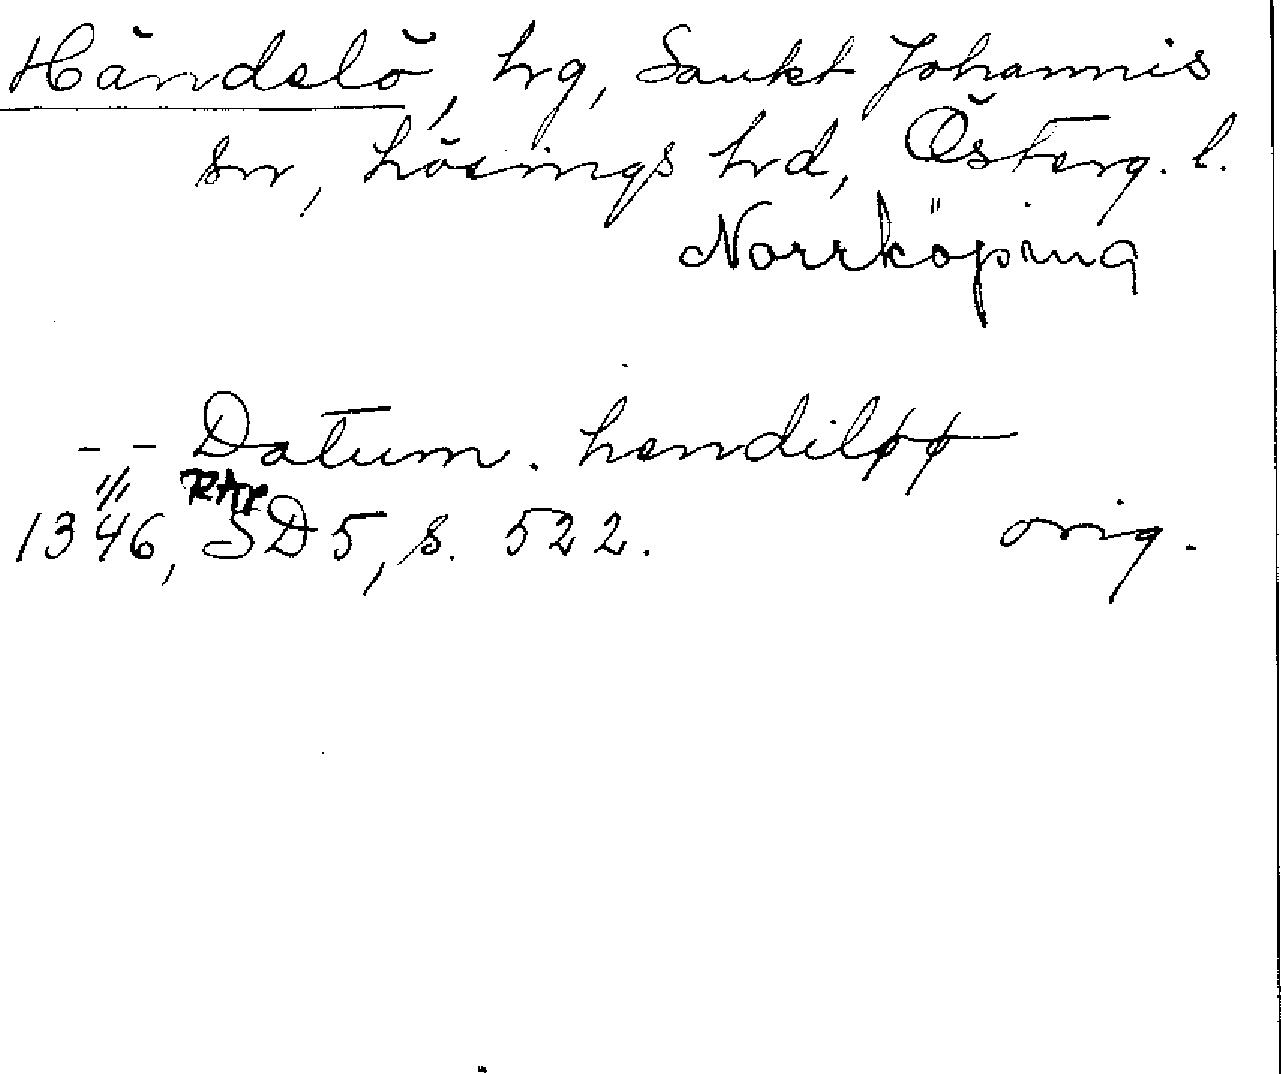 Händelö, hrg, Sankt Johannis
sn, Lösings hrd, Österg. l.
Norrköping
- - Datum. hendiløø
1/11 RAp
1346, SD 5, s. 522. orig.